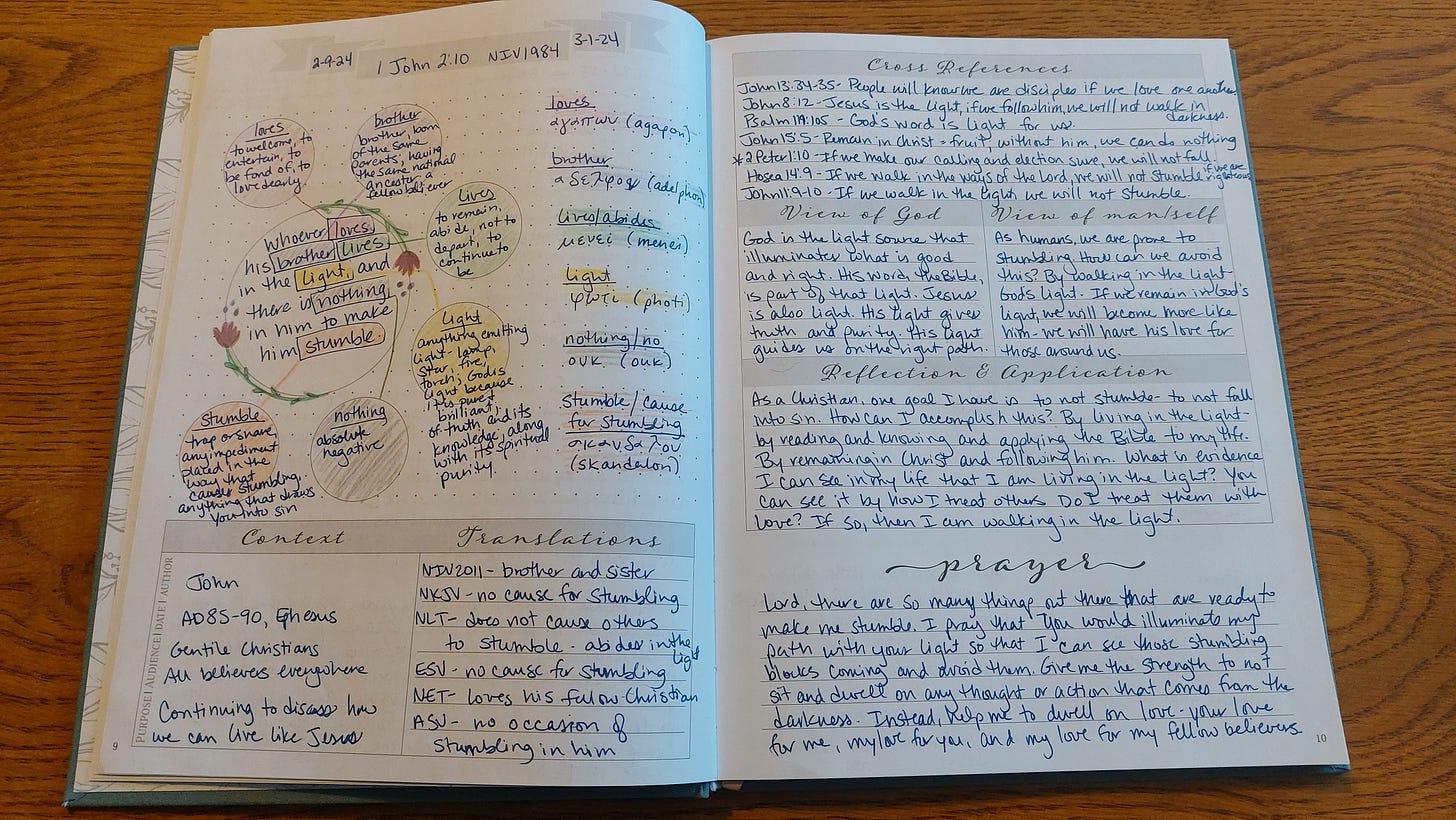 2-9-24
1 John 2:10 NIV1984
3-1-24
loves
to welcome, to
entertain, to
be fond of, to
love dearly
brother
brother, born
of the same
parents; having
the same national
ancestor; a
fellow believer
lives
to remain,
abide, not to
depart, to
continue to
be
whoever loves
his brother lives
in the light, and
there is nothing
in him to make
him stumble.
light
anything emitting
light - lamp,
star, fire,
torch; God is
light because
it is purest
brilliant,
of truth and its
knowledge, along
with its spiritual
purity
stumble
trap or snare,
any impediment
placed in the
way that
causes stumbling.
anything that draws
you into sin
nothing
absolute
negative
loves
αγαπων (agapon)
brother
αδελφον (adelphon)
lives/abides
μενει (menei)
light
φωτι (photi)
nothing/no
ουκ (ouk)
Stumble/cause
for stumbling
σκανδαλον
(skandalon)
Context
PURPOSE | AUDIENCE | DATE | AUTHOR
John
AD85-90, Ephesus
Gentile Christians
All believers everywhere
Continuing to discuss how
we can live like Jesus
9
Translations
NIV2011 - brother and sister
NKJV - no cause for stumbling
NLT - does not cause others
to stumble - abides in the light
ESV - no cause for stumbling
NET - loves his fellow Christian
ASV - no occasion of
stumbling in him
Cross References
John 13:34-35 - People will know we are disciples if we love one another.
John 8:12 - Jesus is the light, if we follow him, we will not walk in
darkness.
Psalm 119:105 - God's word is light for us.
John 15:5 - Remain in Christ = fruit, without him, we can do nothing
*2 Peter 1:10 - If we make our calling and election sure, we will not fall.
Hosea 14:9 - If we walk in the ways of the Lord, we will not stumble if we are righteous
John 11:9-10 - If we walk in the light, we will not stumble.
View of God
God is the light source that
illuminates what is good
and right. His word, the Bible,
is part of that light. Jesus
is also light. His light gives
truth and purity. His light
guides us on the right path.
View of man/self
As humans, we are prone to
stumbling. How can we avoid
this? By walking in the light
God's light. If we remain in God's
light, we will become more like
him - we will have his love for
those around us.
Reflection & Application
As a Christian, one goal I have is to not stumble - to not fall
into sin. How can I accomplish this? By living in the light -
by reading and knowing and applying the Bible to my life.
By remaining in Christ and following him. What is evidence
I can see in my life that I am living in the light? You
can see it by how I treat others. Do I treat them with
love? If so, then I am walking in the light.
prayer
Lord, there are so many things out there that are ready to
make me stumble. I pray that You would illuminate my
path with your light so that I can see those stumbling
blocks coming and avoid them. Give me the strength to not
sit and dwell on any thought or action that comes from the
darkness. Instead, help me to dwell on love - your love
for me, my love for you, and my love for my fellow believers.
10